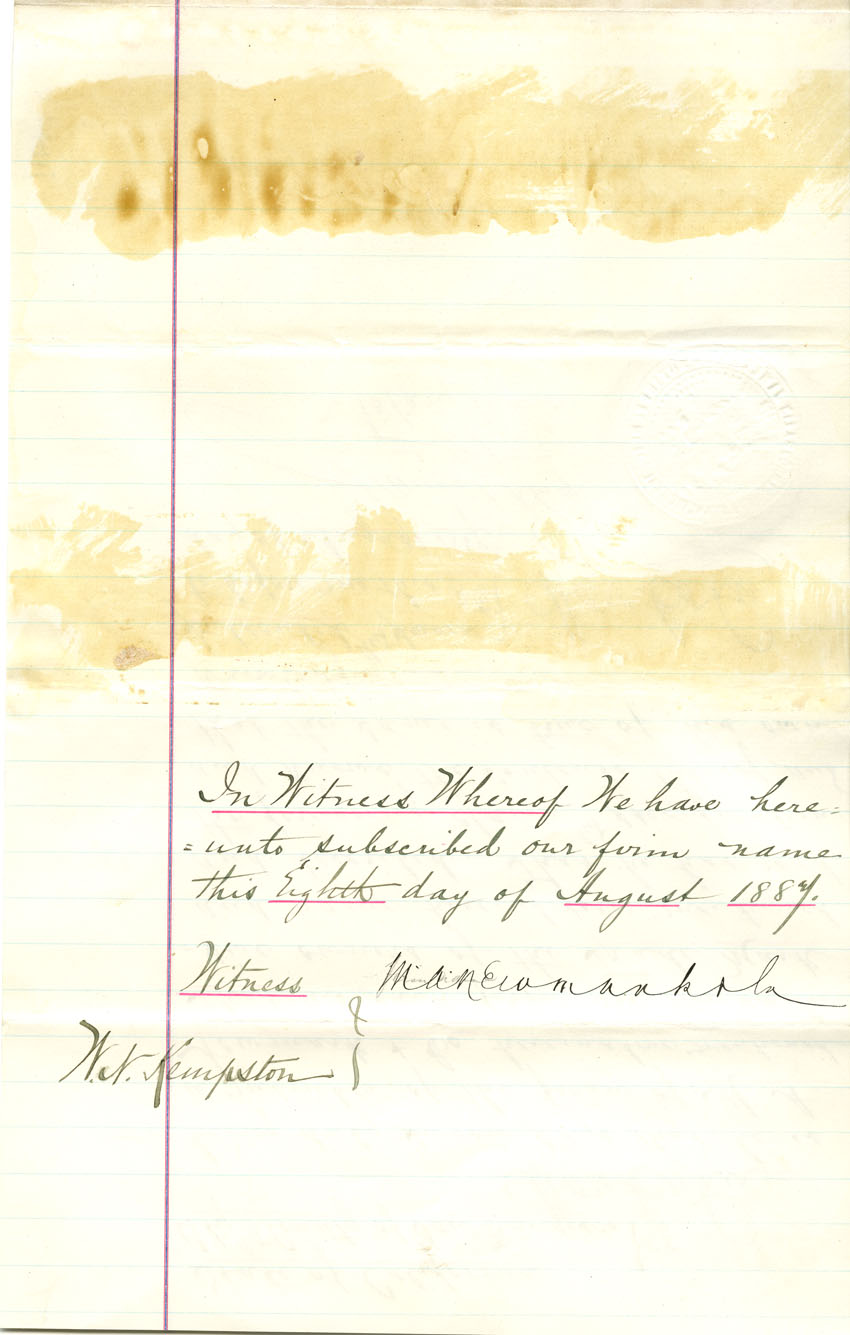 In Witness Whereof We have here=
=unto subscribed our firm name
this Eighth day of August 1887.
Witness M A Newmark & Co
W. N. Kempston